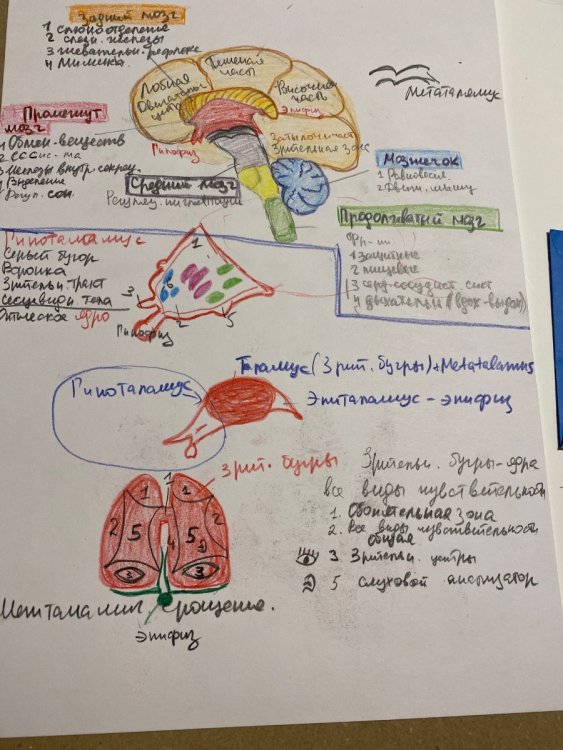 Задний мозг
1 слюноотделение
2 слезн. железы
3 жевательн. рефлекс
4 Мимика.
Лобная
Двигательн
центр
Теменая
часть
Височная
часть
Эпифиз
Метаталамус
Промежут
мозг
Обмен-веществ
2 ССС
Железы внутр. секрец.
Выделение
сон.
Гипофиз
Затылочн часть
Зрительная зона
Средний мозг
Мозжечок
1 Равновесие
2 Движ. мышц
Продолговатый мозг
1 защитные
2 пищевые
3 серд-сосудист сист
4 дыхательн (вдох-выдох)
Гипоталамус
Серый бугор
Воронка
Зрительн. тракт
Сосцевидн. тела
Оптическое ядро
1
3
2
5
Гипофиз
Таламус (Зрит. бугры) + Metatalamus
Гипоталамус
Эпиталамус - эпифиз
Зрит. бугры
1
1 1
2 5 4 5 2
3 3
Зрительн. бугры-ядра
все виды чувствительности
1. Обонятельная зона
2. Все виды чувствительности
общая
3 Зрительн. центры
5 слуховой анализатор
Эпифиз